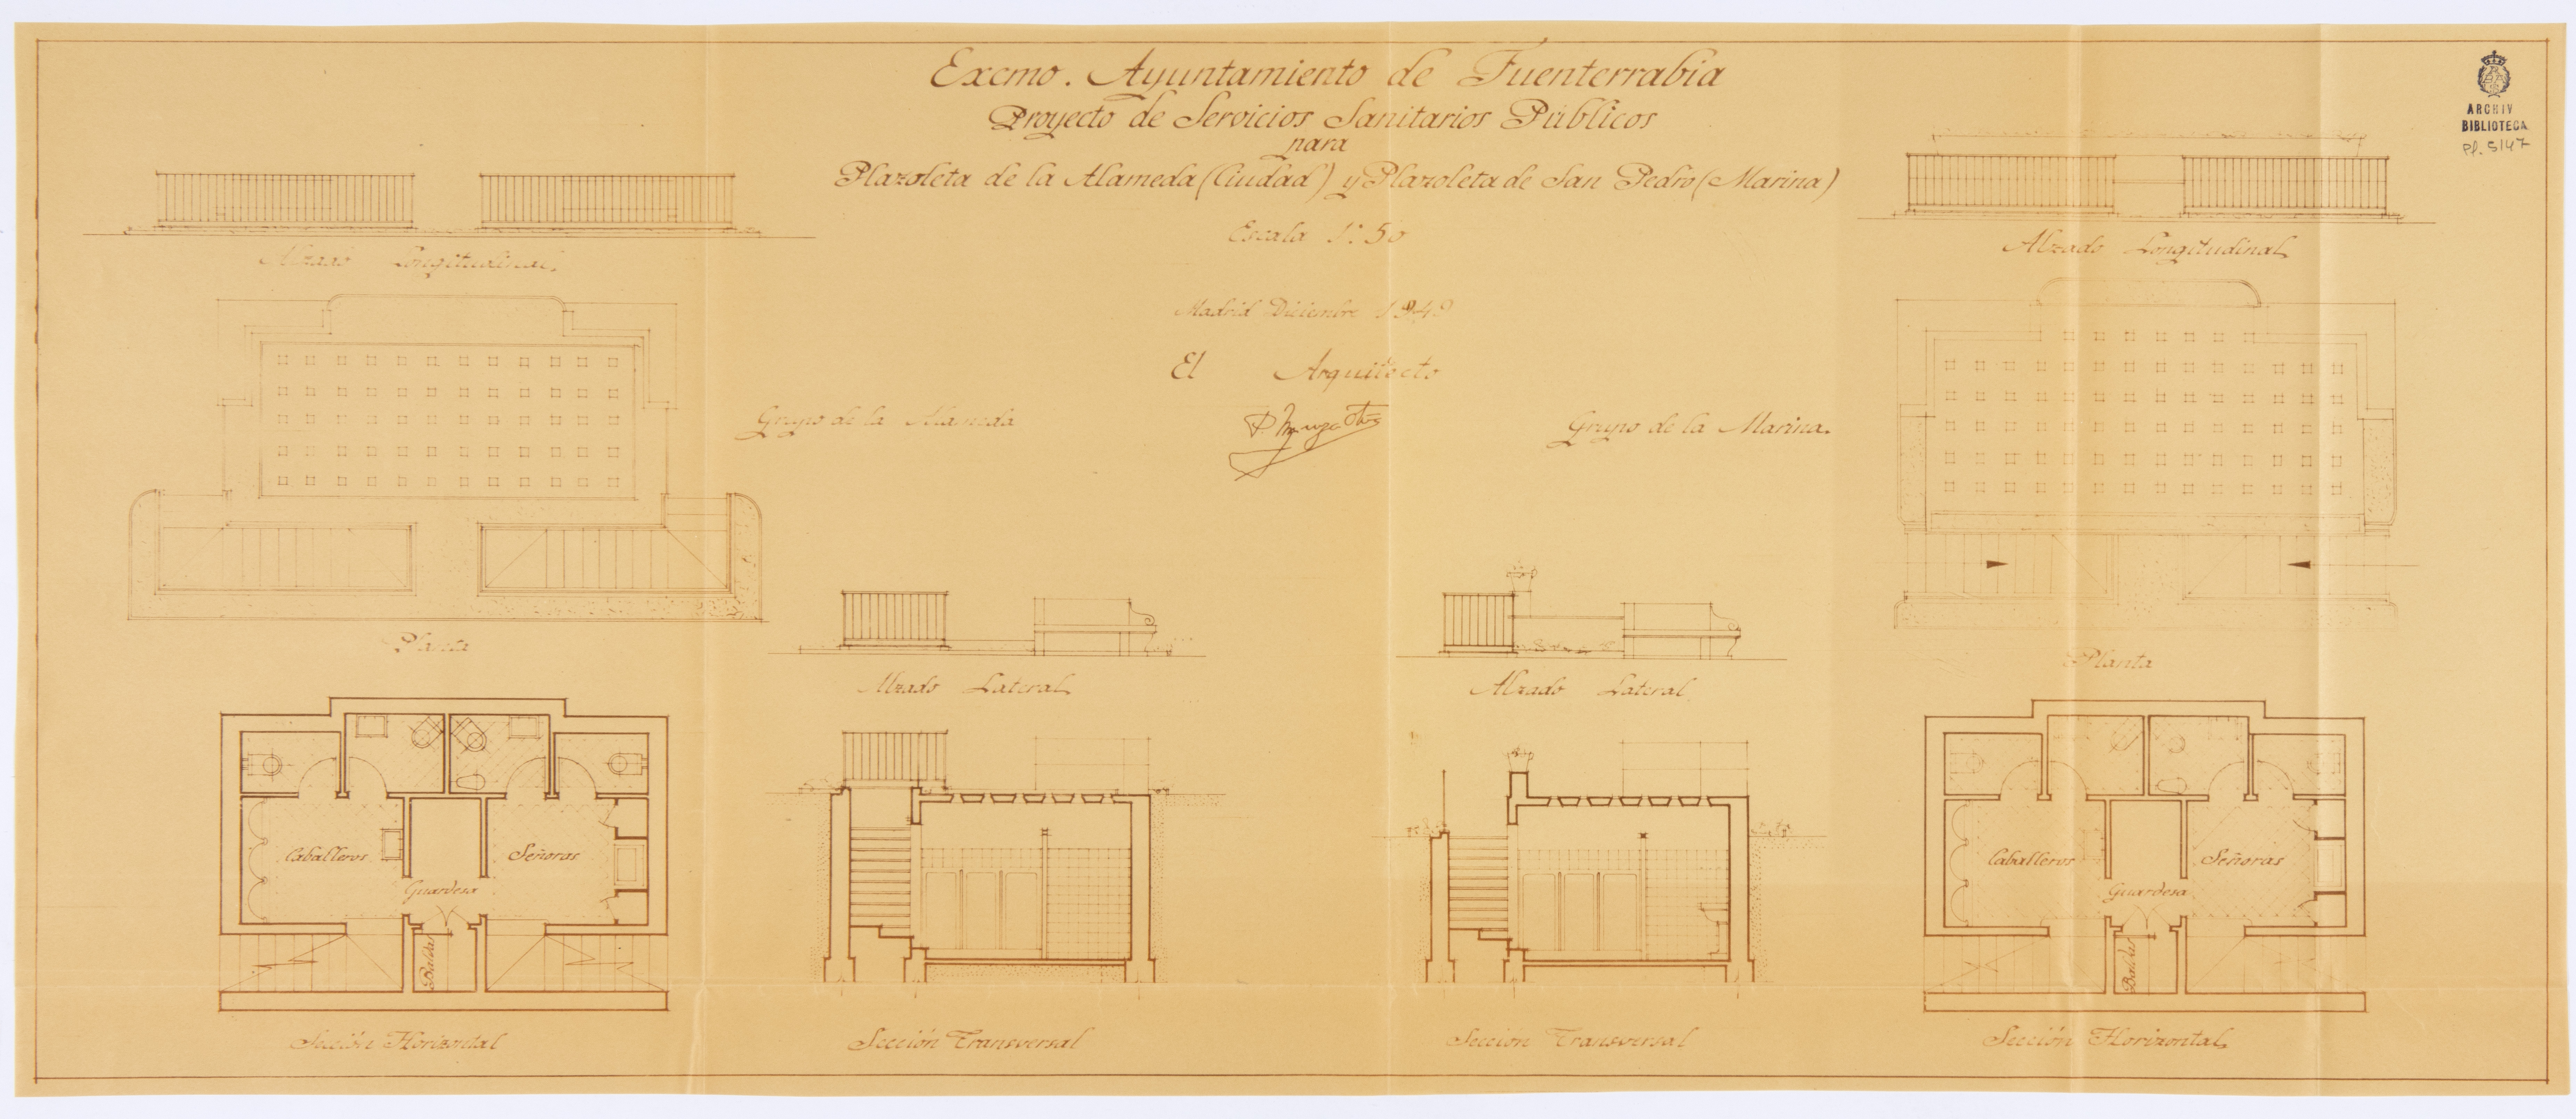 Excmo. Ayuntamiento de Fuenterrabia
Proyecto de Servicios Sanitarios Públicos
para
Plazoleta de la Alameda (Ciudad) y Plazoleta de San Pedro (Marina)
Escala 1:50
Madrid Diciembre 1949
El Arquitecto
ARCHIV
BIBLIOTECA
Pl. 5147
Alzado Longitudinal.
Alzado Longitudinal
Grupo de la Alameda
Grupo de la Marina.
Planta
Planta
Alzado Lateral
Alzado Lateral
Caballeros
Señoras
Guardesa
Baldas
Caballeros
Señoras
Guardesa
Baldas
Sección Horizontal
Sección Transversal
Sección Transversal
Sección Horizontal